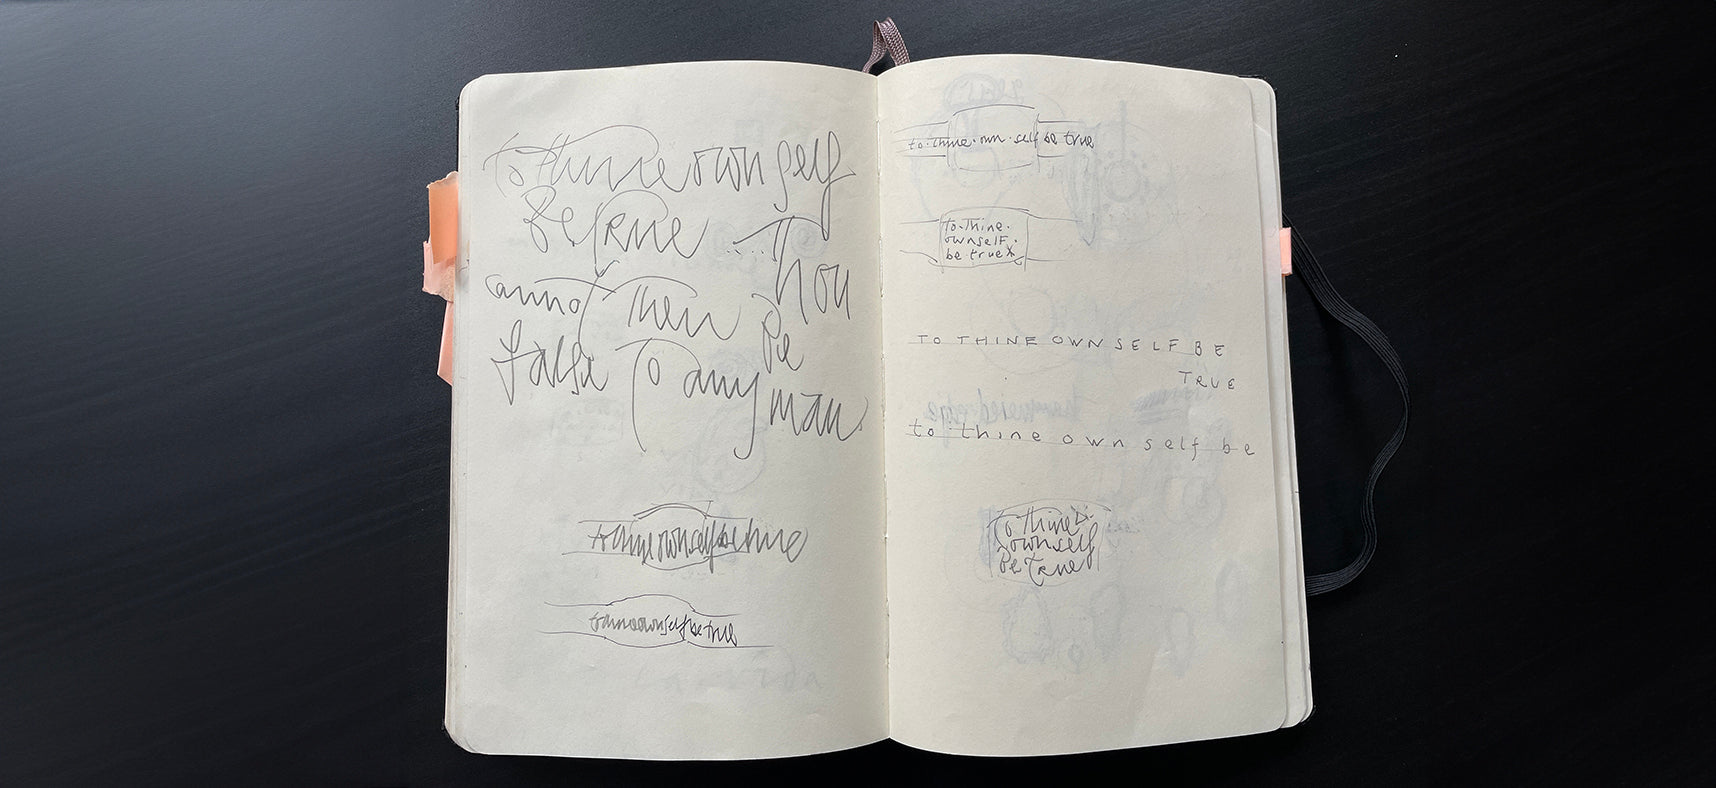 to thine own self
be true .... Thou
cannot then be
false to any man.
to thine own self be true
to thine own self be true
to·thine·own·self be true
to·thine·
ownself·
be·true
TO THINE OWN SELF BE
TRUE
to thine own self be
to thine
ownself
be True